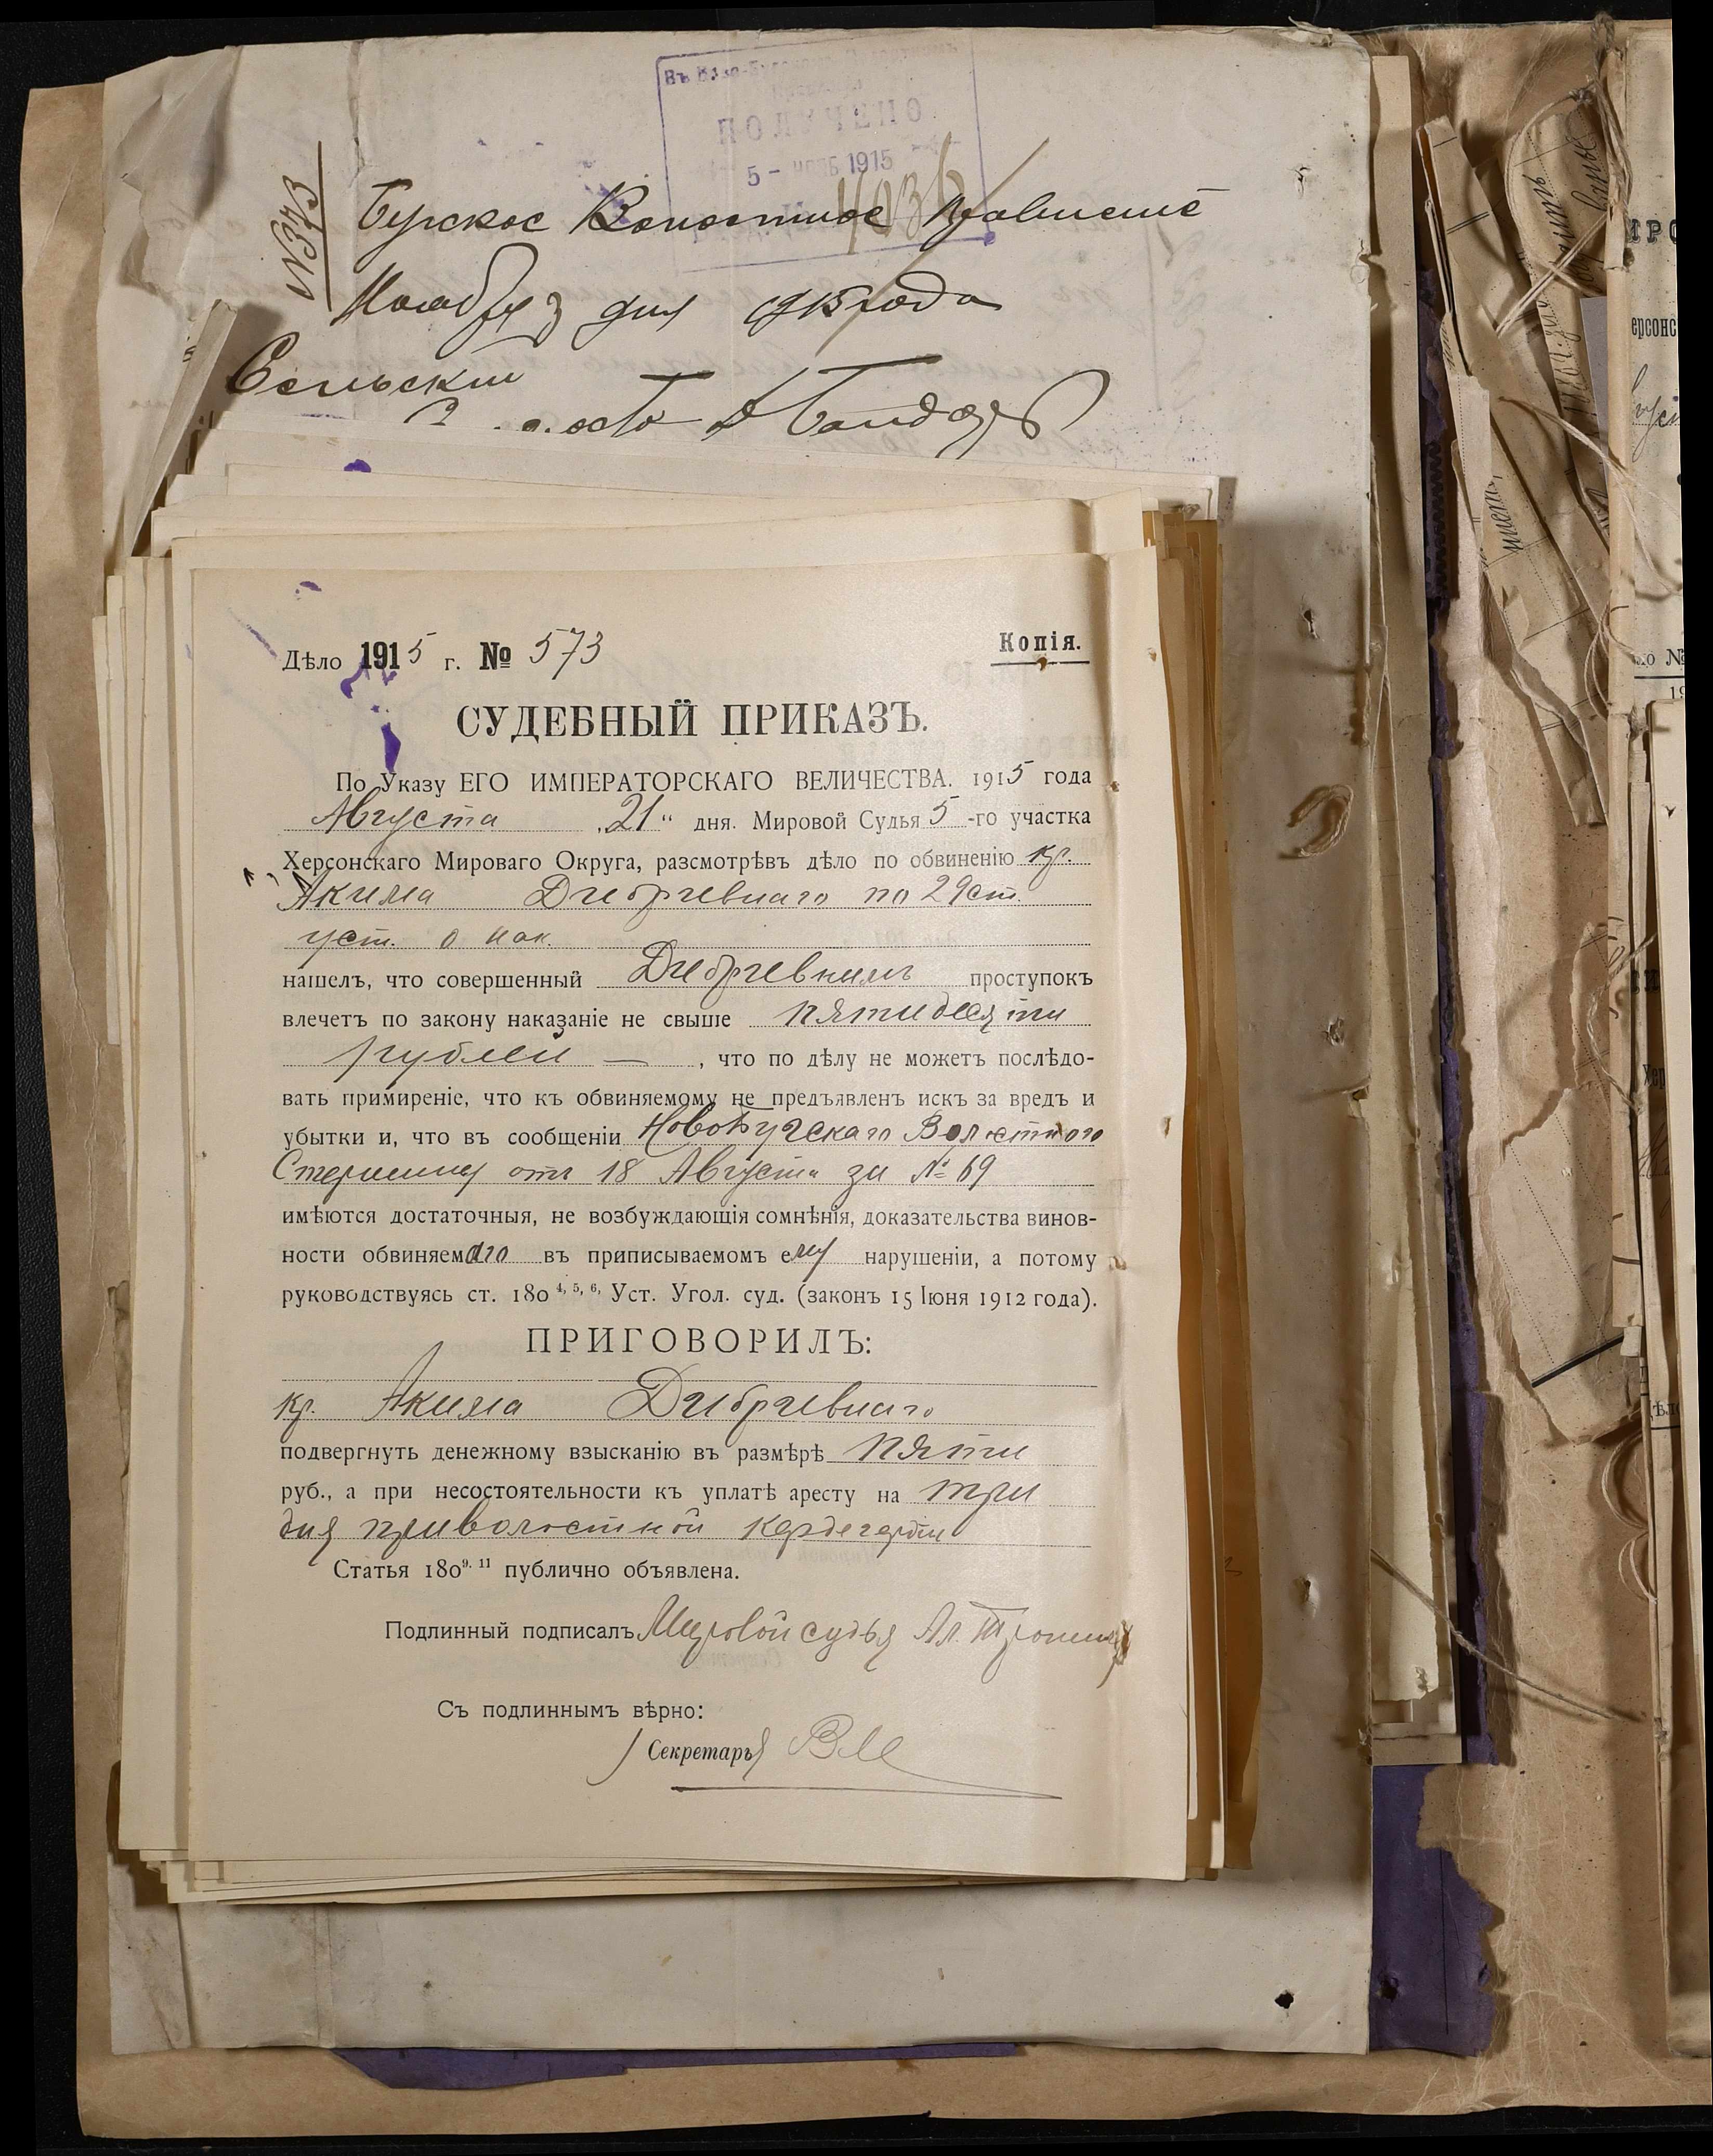 ПОЛУЧЕНО
5 - 1915
№ 373
Бугское Волостное Правленіе
Ноября 3 дня 1915 года
Сельскій
Дѣло 1915 г. № 573
Копія.
СУДЕБНЫЙ ПРИКАЗЪ.
По Указу ЕГО ИМПЕРАТОРСКАГО ВЕЛИЧЕСТВА. 1915 года
Августа „21“ дня. Мировой Судья 5-го участка
Херсонскаго Мироваго Округа, разсмотрѣвъ дѣло по обвиненію кр.
Акима по 29 ст.
уст. о нак.
нашелъ, что совершенный проступокъ
влечетъ по закону наказаніе не свыше пятидесяти
рублей —, что по дѣлу не можетъ послѣдо-
вать примиреніе, что къ обвиняемому не предъявленъ искъ за вредъ и
убытки и, что въ сообщеніи НовоБугскаго Волостного
Старшины отъ 18 Августа за № 69
имѣются достаточныя, не возбуждающія сомнѣнія, доказательства винов-
ности обвиняемаго въ приписываемомъ ему нарушеніи, а потому
руководствуясь ст. 180 4, 5, 6, Уст. Угол. суд. (законъ 15 Іюня 1912 года).
ПРИГОВОРИЛЪ:
кр. Акима
подвергнуть денежному взысканію въ размѣрѣ пяти
руб., а при несостоятельности къ уплатѣ аресту на три
дня при волостной кордегардіи
Статья 180 9. 11 публично объявлена.
Подлинный подписалъ Мировой судья Ал.
Съ подлиннымъ вѣрно:
Секретарь